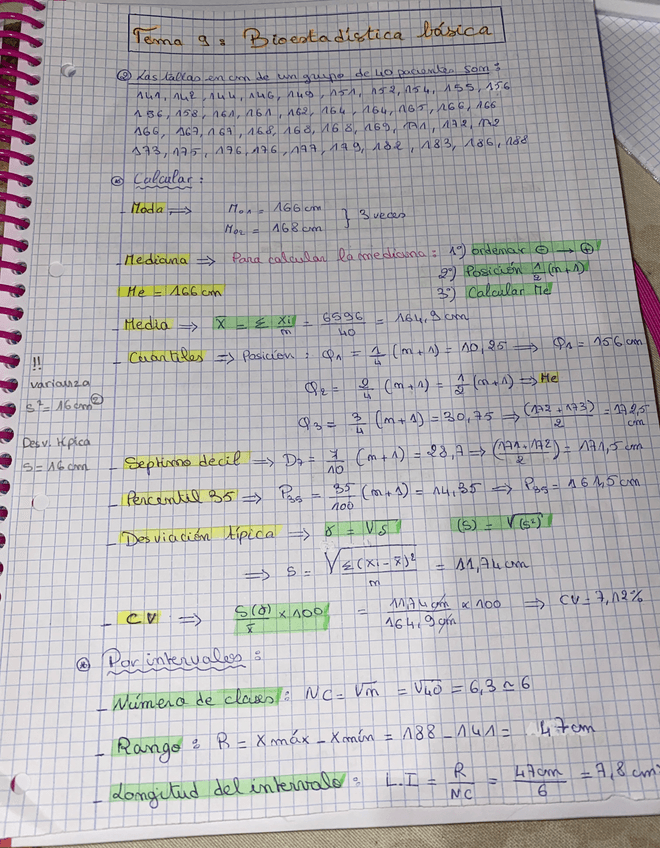 Tema 9: Bioestadística básica
Las tallas en cm de un grupo de 40 pacientes son:
141, 142, 144, 146, 149, 151, 152, 154, 155, 156
156, 158, 161, 161, 162, 164, 164, 165, 166, 166
166, 167, 167, 168, 168, 168, 169, 171, 172, 172
173, 175, 176, 176, 177, 179, 182, 183, 186, 188
Calcular:
- Moda ⇒ Mo1 = 166 cm
Mo2 = 168 cm } 3 veces
- Mediana ⇒ Para calcular la mediana: 1º) ordenar ⊖ → ⊕
2º) Posición 1/2 (n+1)
Me = 166 cm 3º) Calcular Me
- Media ⇒ x̄ = Σ xi/n = 6596/40 = 164,9 cm
- Cuantiles ⇒ Posicion: Q1 = 1/4 (n+1) = 10,25 ⇒ Q1 = 156 cm
!!
varianza
s² = 16 cm²
Desv. típica
s = 16 cm
Q2 = 2/4 (n+1) = 1/2 (n+1) ⇒ Me
Q3 = 3/4 (n+1) = 30,75 ⇒ (172+173)/2 = 172,5 cm
- Septimo decil ⇒ D7 = 7/10 (n+1) = 28,7 ⇒ (171+172/2) = 171,5 cm
- Percentil 35 ⇒ P35 = 35/100 (n+1) = 14,35 ⇒ P35 = 161,5 cm
- Desviación típica ⇒ γ = √s (s) = √(s²)
⇒ s = √Σ(xi - x̄)²/n = 11,74 cm
- CV ⇒ S(γ)/x̄ × 100 = 11,74 cm/164,9 cm × 100 ⇒ CV = 7,12%
Por intervalos:
- Número de clases: NC = √n = √40 = 6,3 ≃ 6
- Rango: R = Xmáx - Xmín = 188 - 141 = 47 cm
- Longitud del intervalo: L.I = R/NC = 47cm/6 = 7,8 cm